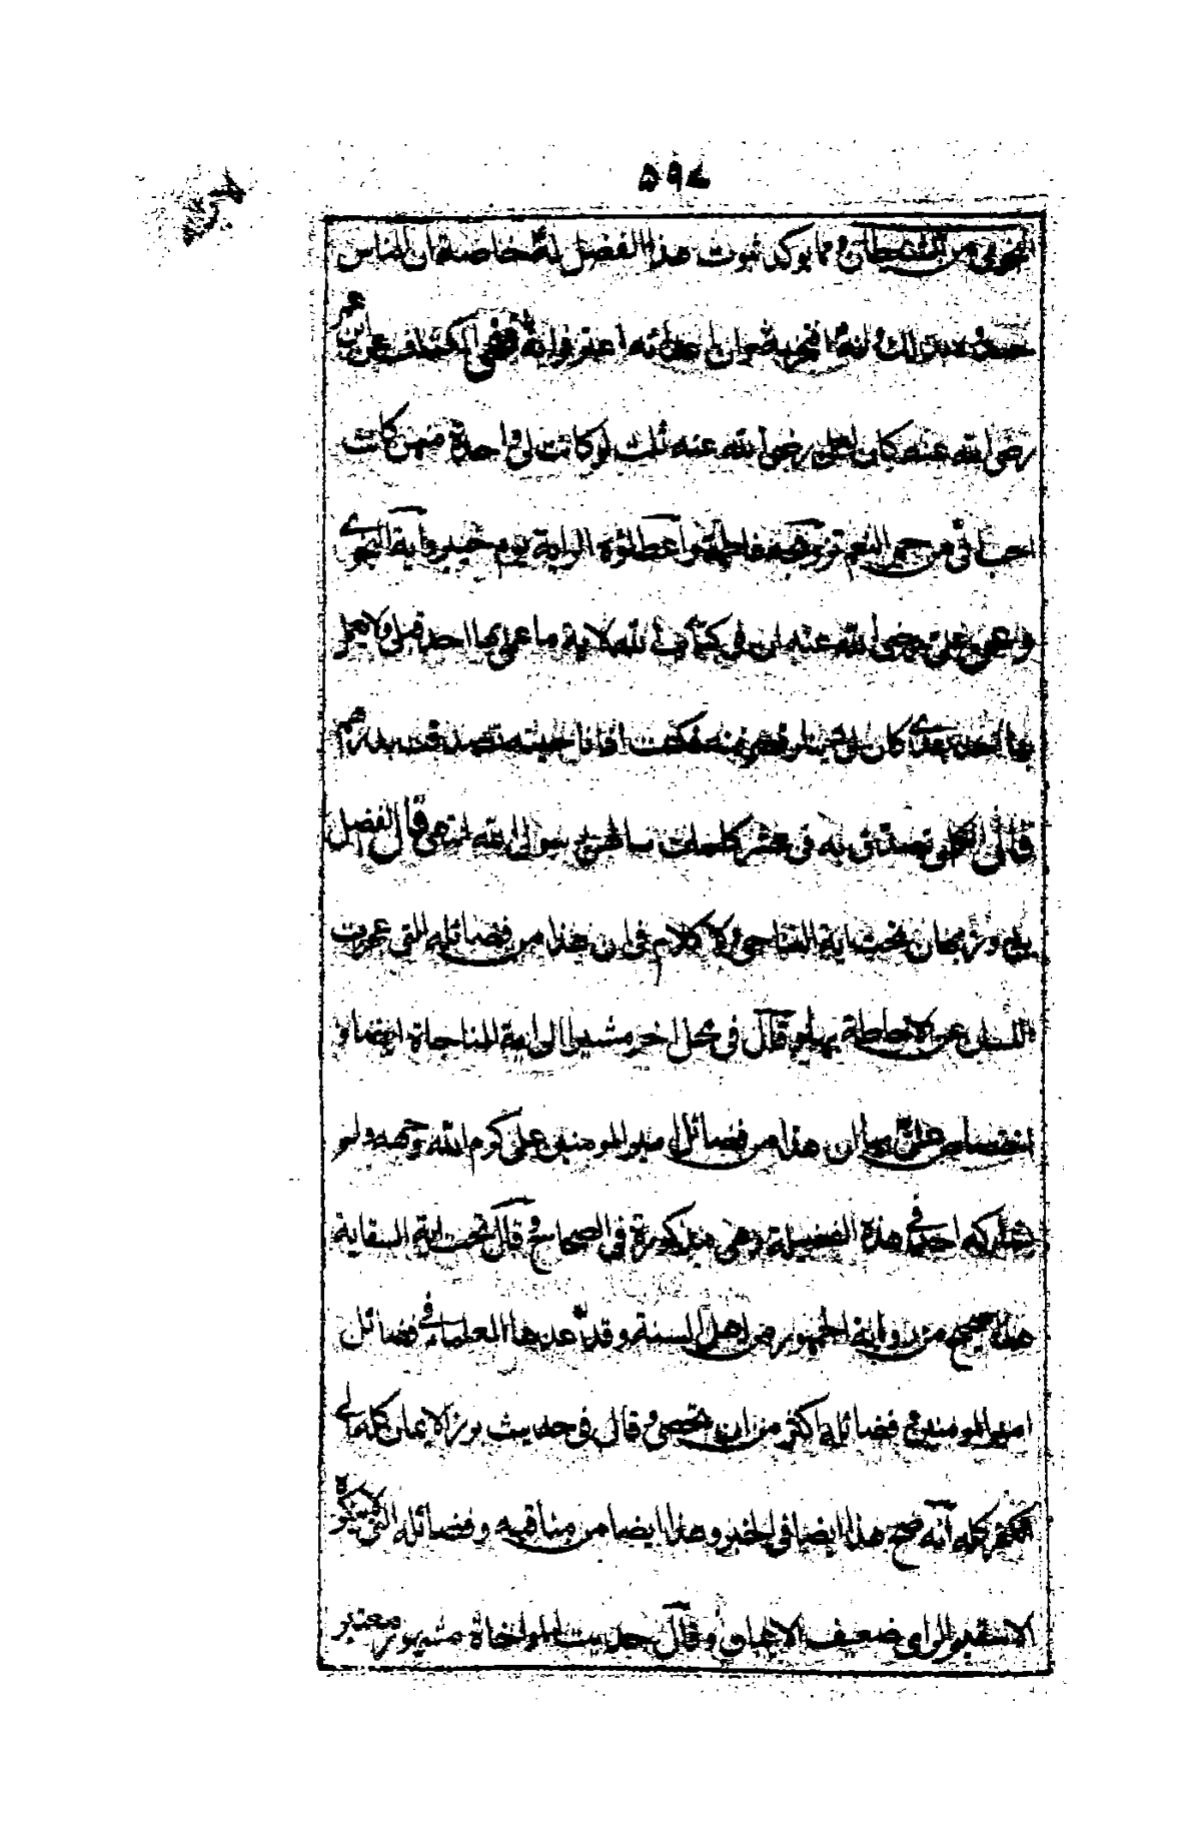 ٥٩٧
النحوي من الشيطان ومما يوكد ثبوت هذا الفضل له خاصة ان الناس
ذلك له ان اعدائه ففى الكشاف عن ابن عمر
رضى الله عنه كان لعلى رضى الله عنه ثلث لو كانت لى واحدة منهن كانت
احب الى من حمر النعم تزوجه فاطمة واعطائوه الراية يوم خيبر وآية النجوى
وعن على رضى الله عنه ان فى كتاب الله لاية ما عمل بها احد قبلى ولا يعمل
بها احد بعدى كان لى دينار فصرفته فكنت اذا ناجيته تصدقت بدرهم
قال الكلبى تصدق به فى عشر كلمات سالهن رسول الله انتهى قال الفضل
بن روزبهان تحت اية التناجى ولا كلام فى ان هذا من فضائله التى عجزت
اللسان عن الاحاطة بها وقال فى محل اخر مشيرا الى اية المناجاة ايضا و
اختصاص على بها ان هذا من فضائل امير المومنين على كرم الله وجهه ولم
يشاركه احد فى هذه الفضيلة وهى مذكورة فى الصحاح وقال تحت اية السقاية
هذا صحيح من رواية الجمهور من اهل السنة وقد عدها العلماء فى فضائل
امير المومنين وفضائله اكثر من ان تحصى وقال فى حديث برز الايمان كله الى
الكفر كله انه صح هذا ايضا فى الخبر وهذا ايضا من مناقبه وفضائله التى لا ينكره
الا سقيم الراى ضعيف الايمان وقال حديث المواخاة مشهور معتبر